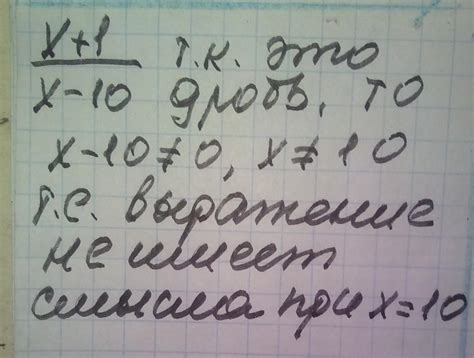 x+1 т.к. это
x-10 дробь, то
x-10≠0, x≠10
т.е. выражение
не имеет
смысла при x=10